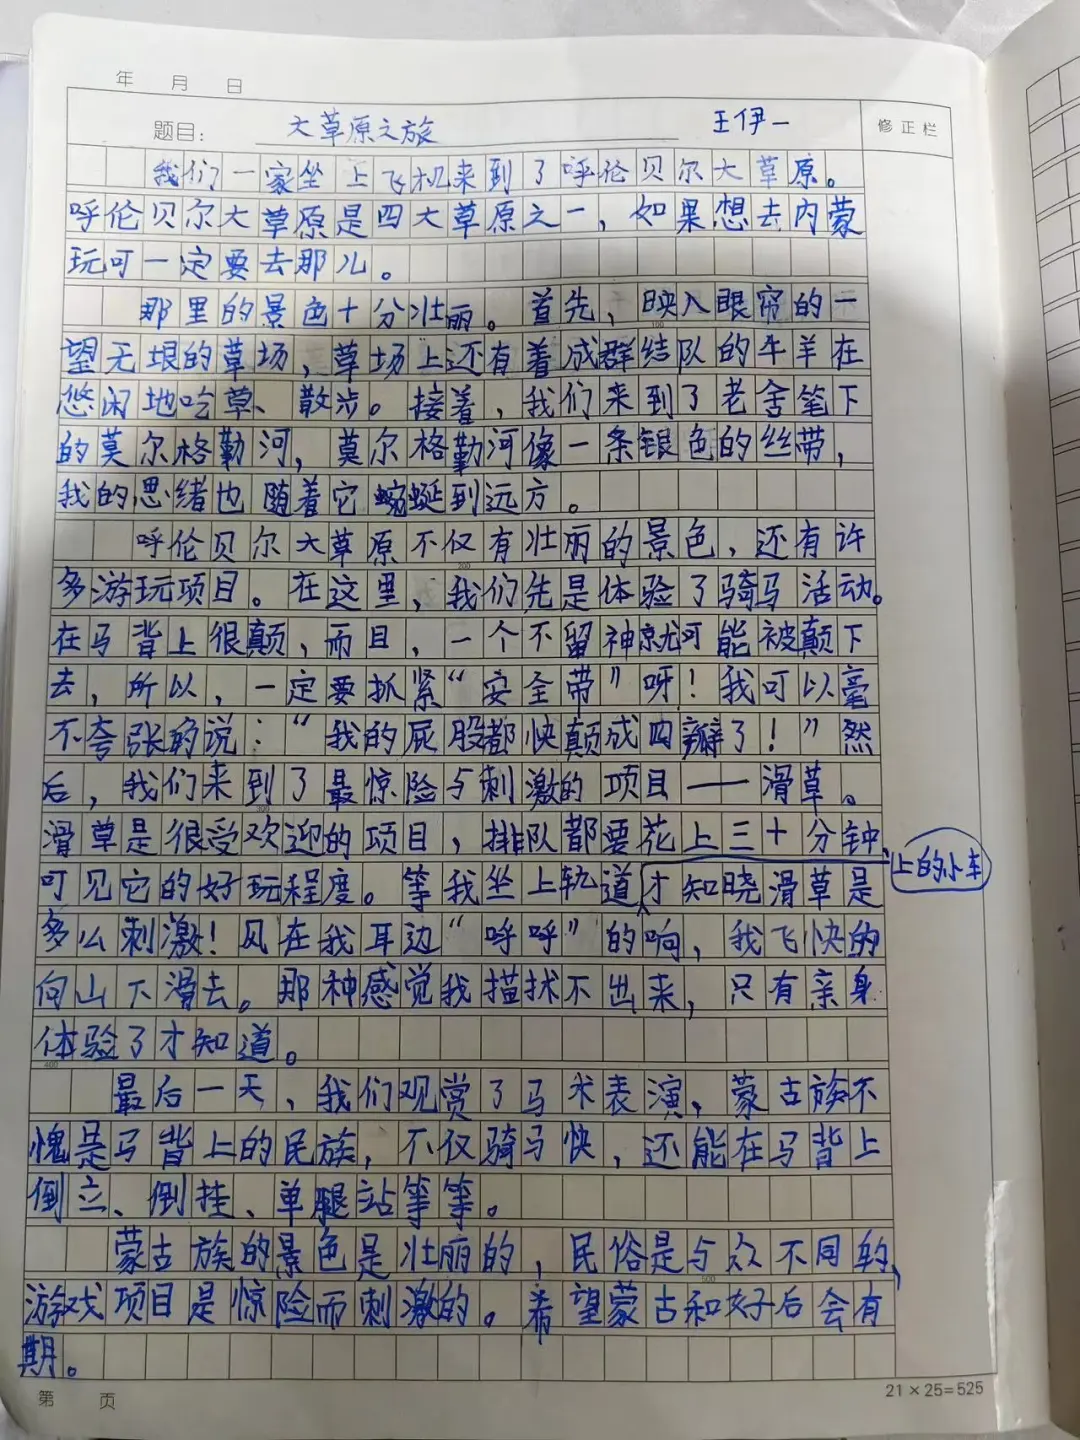 年 月 日
题目： 大草原之旅 王伊一 修正栏
我们一家坐上飞机来到了呼伦贝尔大草原。
呼伦贝尔大草原是四大草原之一，如果想去内蒙
玩可一定要去那儿。
那里的景色十分壮丽。首先，映入眼帘的一
100
望无垠的草场，草场上还有着成群结队的牛羊在
悠闲地吃草、散步。接着，我们来到了老舍笔下
的莫尔格勒河，莫尔格勒河像一条银色的丝带，
我的思绪也随着它蜿蜒到远方。
呼伦贝尔大草原不仅有壮丽的景色，还有许
200
多游玩项目。在这里，我们先是体验了骑马活动。
在马背上很颠，而且，一个不留神就可能被颠下
去，所以，一定要抓紧“安全带”呀！我可以毫
不夸张的说：“我的屁股都快颠成四瓣了！”然
后，我们来到了最惊险与刺激的项目——滑草。
300
滑草是很受欢迎的项目，排队都要花上三十分钟，
可见它的好玩程度。等我坐上轨道上的小车才知晓滑草是
多么刺激！风在我耳边“呼呼”的响，我飞快的
向山下滑去。那种感觉我描述不出来，只有亲身
体验了才知道。
400
最后一天，我们观赏了马术表演，蒙古族不
愧是马背上的民族，不仅骑马快，还能在马背上
倒立、倒挂、单腿站等等。
蒙古族的景色是壮丽的，民俗是与众不同的，
500
游戏项目是惊险而刺激的。希望蒙古和好后会有
期。
第 页 21×25=525